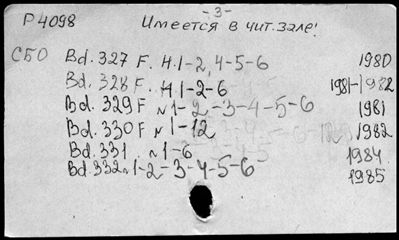 -3-
P4098 Имеется в чит. зале!
СБО Bd. 327 F. H.1-2, 4-5-6 1980
Bd. 328 F. H.1-2-6 1981-1982
Bd. 329 F N 1-2-3-4-5-6 1981
Bd. 330 F N 1-12 1982
Bd. 331 N 1-6 1984
Bd. 332 N 1-2-3-4-5-6 1985